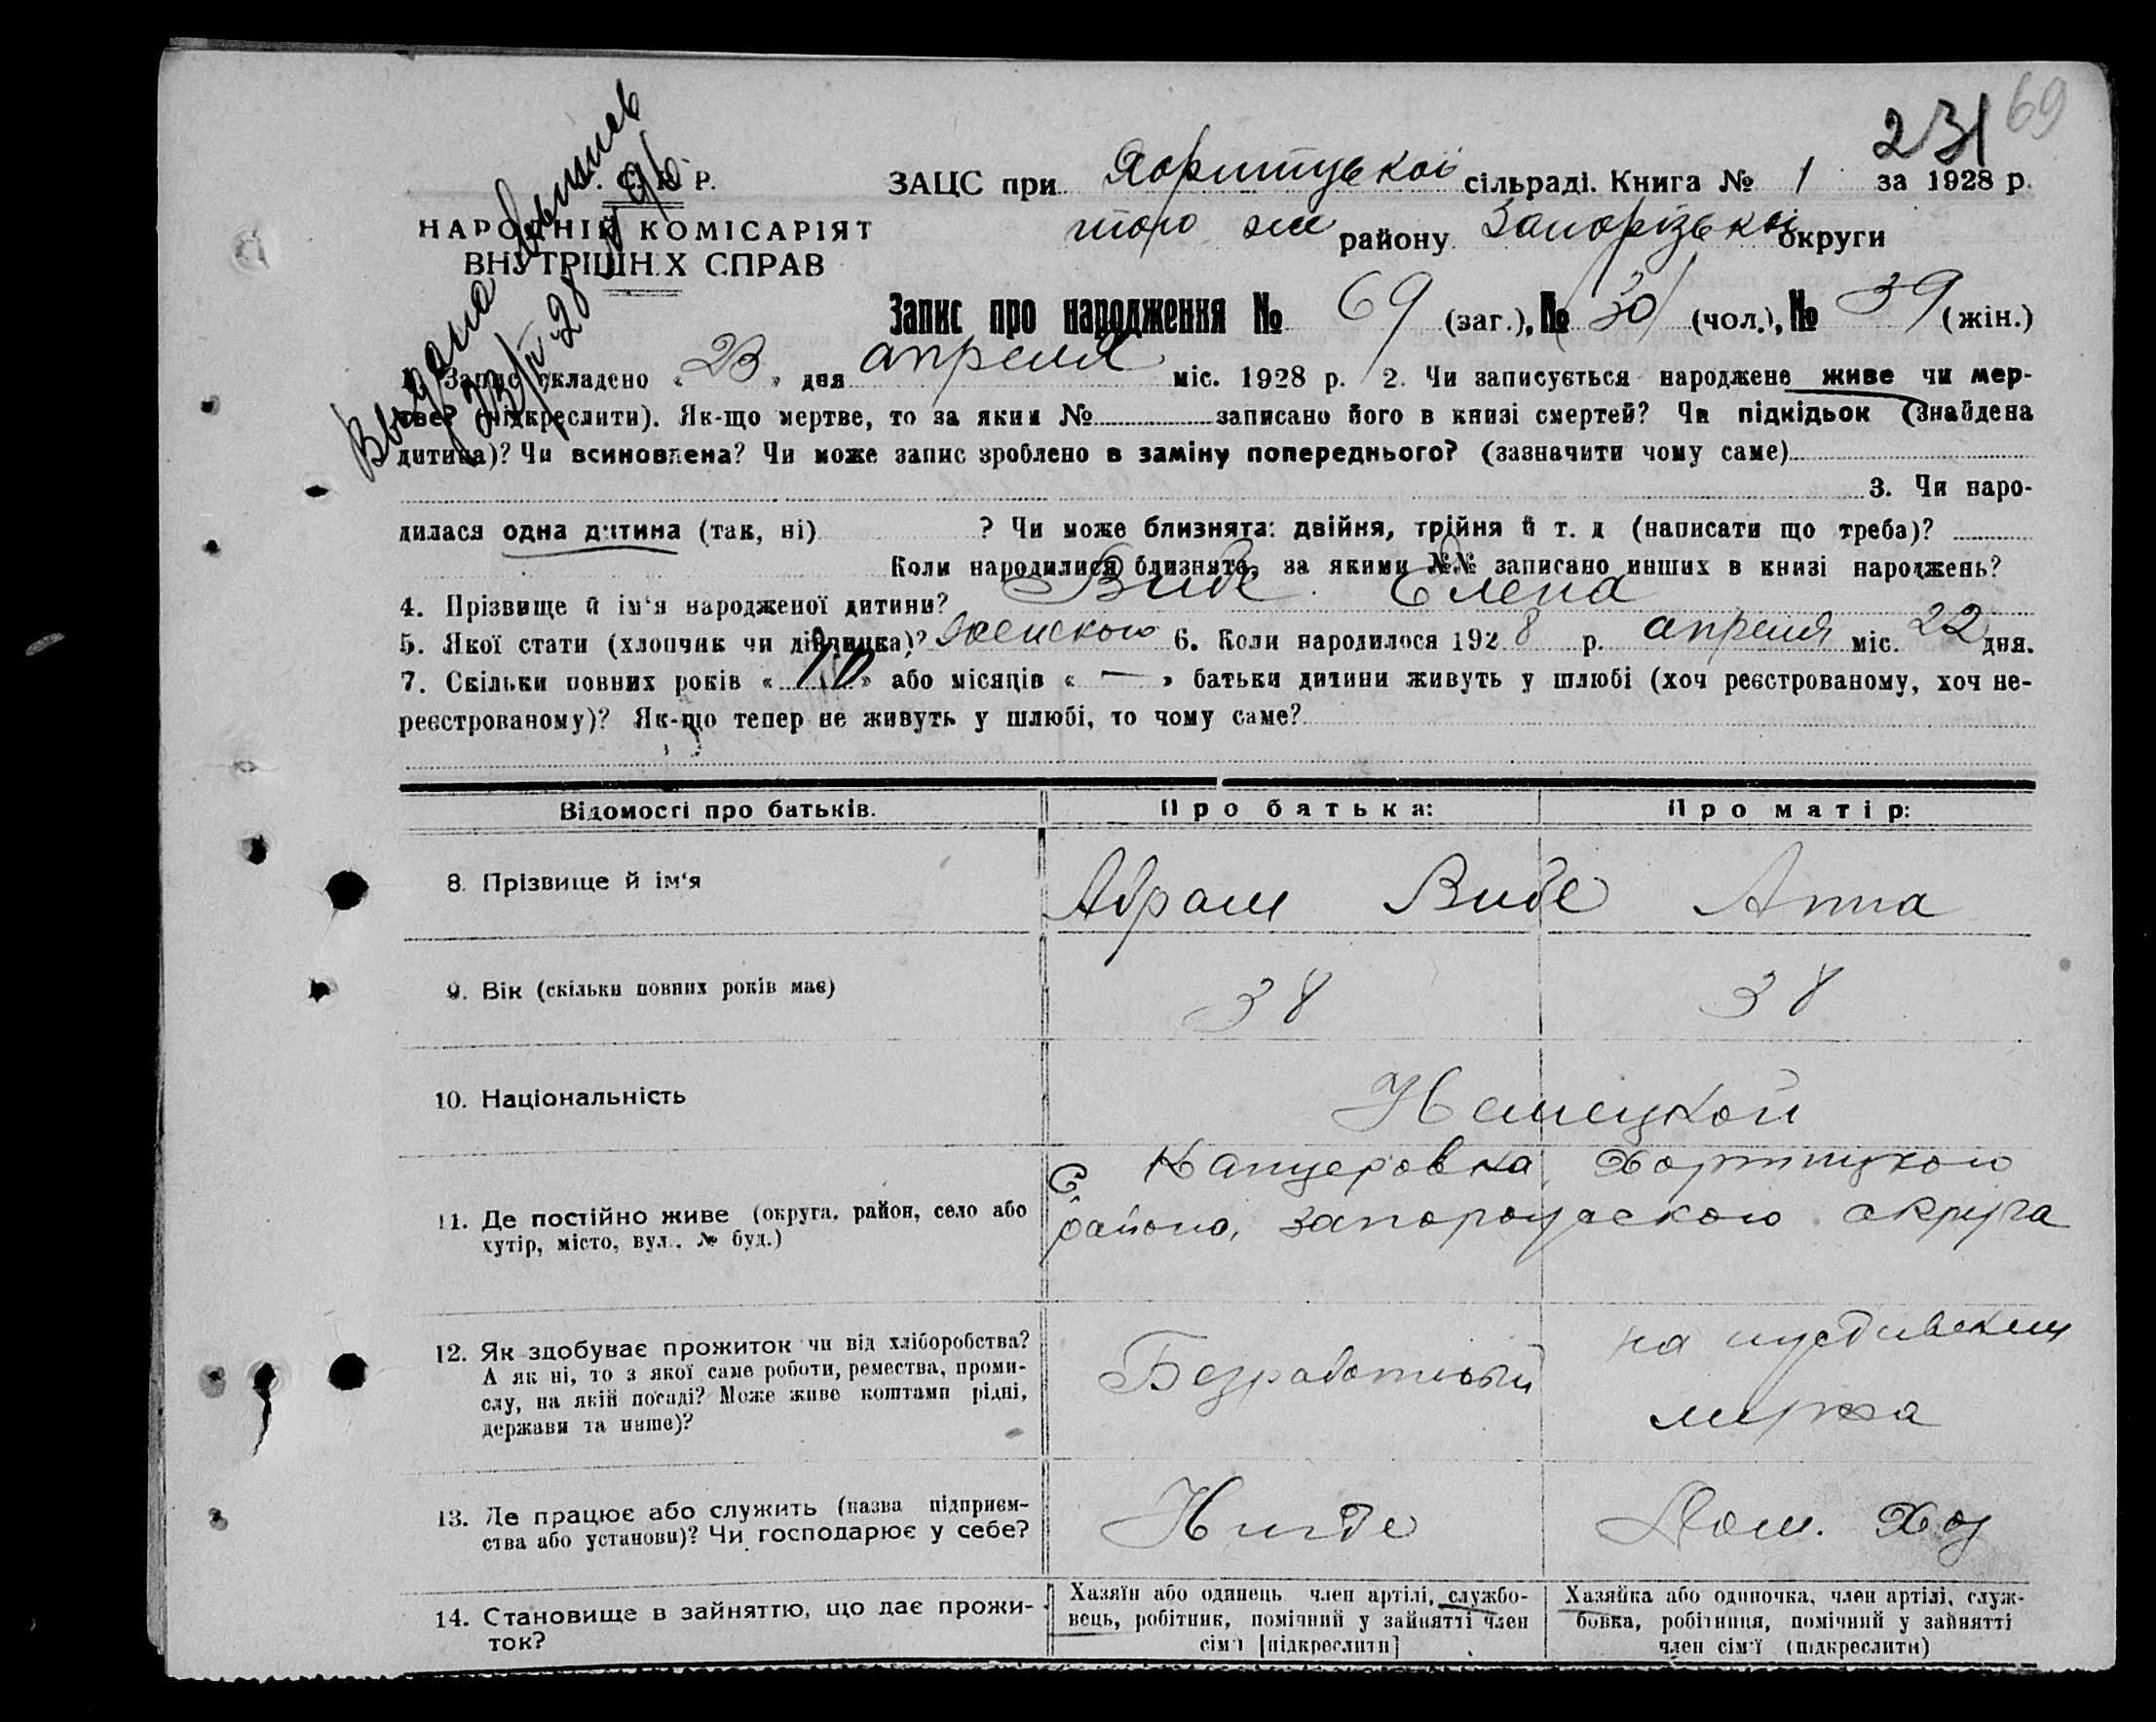 231 69
Выдана выпись
23/IV 28 № 96
С. Р.
НАРОДНІЙ КОМІСАРІЯТ
ВНУТРІШНІХ СПРАВ
ЗАЦС при Хортицької сільраді. Книга № 1 за 1928 р.
того же району Запорізької округи
Запис про народження № 69 (заг.), № 30 (чол.), № 39 (жін.)
1. Запис складено « 23 » дня апреля міс. 1928 р. 2. Чи записується народжене живе чи мер-
тве? (підкреслити). Як-що мертве, то за яким № записано його в книзі смертей? Чи підкідьок (знайдена
дитина)? Чи всиновлена? Чи може запис зроблено в заміну попереднього? (зазначити чому саме)
3. Чи наро-
дилася одна дитина (так, ні) ? Чи може близнята: двійня, трійня й т. д (написати що треба)?
Коли народилися близнята, за якими №№ записано инших в книзі народжень?
4. Прізвище й ім'я народженої дитини? Вибе Елена
5. Якої статі (хлопчик чи дівчинка)? женского 6. Коли народилося 1928 р. апреля міс. 22 дня.
7. Скільки повних років « 10 » або місяців « — » батьки дитини живуть у шлюбі (хоч реєстрованому, хоч не-
реєстрованому)? Як-що тепер не живуть у шлюбі, то чому саме?
Відомості про батьків. Про батька: Про матір:
8. Прізвище й ім'я Абрам Вибе Анна
9. Вік (скільки повних років має) 38 38
10. Національність Немецкой
11. Де постійно живе (округа, район, село або
хутір, місто, вул., № буд.)
С. Канцеровка, Хортицкого
района, запорожского округа
12. Як здобуває прожиток чи від хліборобства?
А як ні, то з якої саме роботи, ремества, проми-
слу, на якій посаді? Може живе коштами рідні,
держави та инше)?
Безработный
на иждивении
мужа
13. Де працює або служить (назва підприєм-
ства або установи)? Чи господарює у себе?
Нигде Дом. Хоз
14. Становище в зайняттю, що дає прожи-
ток?
Хазяїн або одинець, член артілі, службо-
вець, робітник, помічний у зайнятті член
сім'ї [підкреслити]
Хазяйка або одиночка, член артілі, служ-
бовка, робітниця, помічний у зайнятті
член сім'ї (підкреслити)